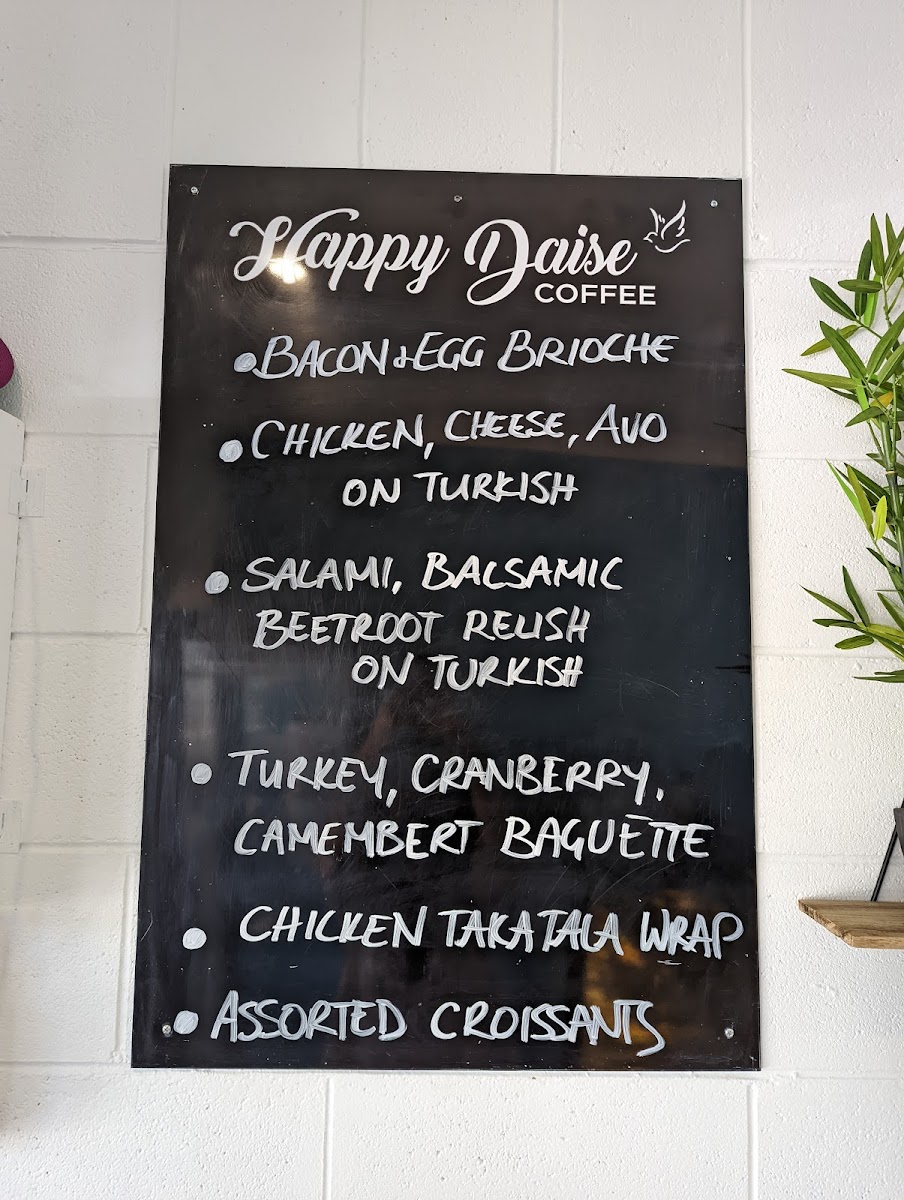 Happy Daise
COFFEE
• BACON & EGG BRIOCHE
• CHICKEN, CHEESE, AVO
ON TURKISH
• SALAMI, BALSAMIC
BEETROOT RELISH
ON TURKISH
• TURKEY, CRANBERRY,
CAMEMBERT BAGUETTE
• CHICKEN TAKATALA WRAP
• ASSORTED CROISSANTS